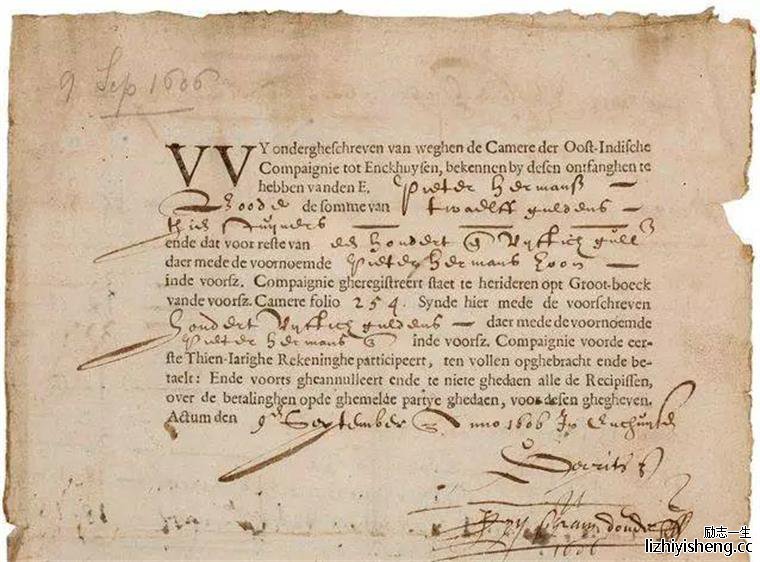 9 Sep 1606
VVY ondergheschreven van weghen de Camere der Oost-Indische
Compaignie tot Enckhuysen, bekennen by desen ontfanghen te
hebben vanden E. Pieter Hermansz
de somme van twaelff guldens
ende dat voor reste van een hondert vijftich gull
daer mede de voornoemde Pieter Hermans zoon
inde voorsz. Compaignie gheregistreert staet te herideren opt Groot-boeck
vande voorsz. Camere folio 254. Synde hier mede de voorschreven
hondert vijftich guldens daer mede de voornoemde
Pieter Hermans inde voorsz. Compaignie voorde eer-
ste Thien-Iarighe Rekeninghe participeert, ten vollen opghebracht ende be-
taelt: Ende voorts gheannulleert ende te niete ghedaen alle de Recipissen,
over de betalinghen opde ghemelde partye ghedaen, voor desen ghegheven.
Actum den 9 September Anno 1606 In
1606
励志一生
lizhiyisheng.cc